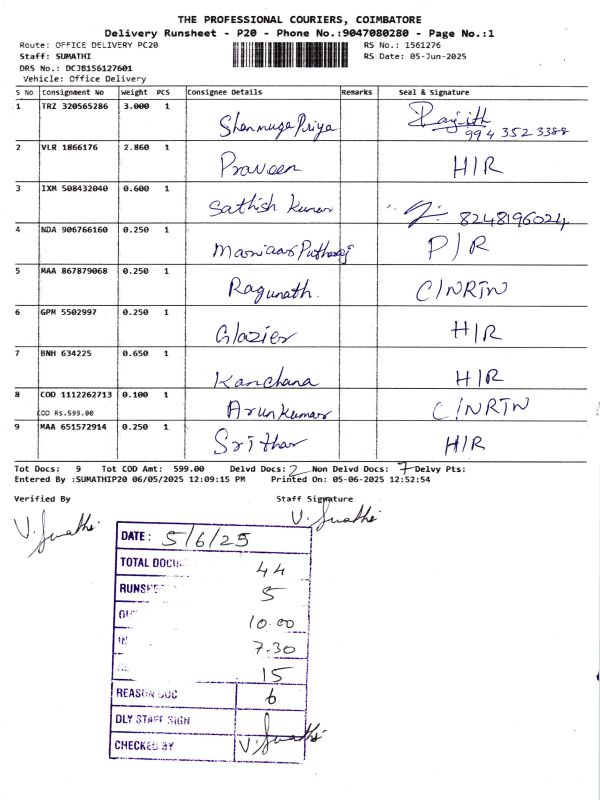 THE PROFESSIONAL COURIERS, COIMBATORE
Delivery Runsheet - P20 - Phone No.:9047080280 - Page No.:1
Route: OFFICE DELIVERY PC20 RS No.: 1561276
Staff: SUMATHI RS Date: 05-Jun-2025
DRS No.: DCJB156127601
Vehicle: Office Delivery
S No Consignment No Weight PCS Consignee Details Remarks Seal & Signature
1 TRZ 320565286 3.000 1 Shanmuga Priya Ranjith
994 352 3388
2 VLR 1866176 2.860 1 Praveen H/R
3 IXM 508432040 0.600 1 Sathish Kumar 8248196024
4 NDA 906766160 0.250 1 P/R
5 MAA 867879068 0.250 1 Ragunath. C/NRTN
6 GPM 5502997 0.250 1 Glazier H/R
7 BNH 634225 0.650 1 Kanchana H/R
8 COD 1112262713 0.100 1 Arun Kumar C/NRTN
COD Rs.599.00
9 MAA 651572914 0.250 1 Srithar H/R
Tot Docs: 9 Tot COD Amt: 599.00 Delvd Docs: 2 Non Delvd Docs: 7 Delvy Pts:
Entered By :SUMATHIP20 06/05/2025 12:09:15 PM Printed On: 05-06-2025 12:52:54
Verified By Staff Signature
V. Swathi V. Swathi
DATE: 5/6/25
TOTAL 44
5
10.00
7.30
15
REASON DOC 6
DLY STAFF SIGN
CHECKED BY V. Swathi